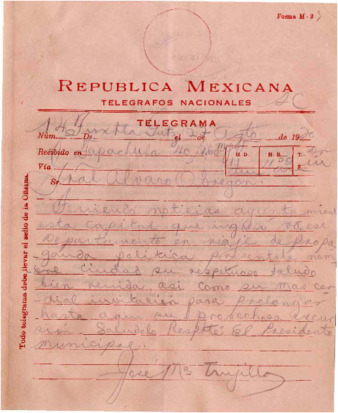 Forma M-2
REPUBLICA MEXICANA
TELEGRAFOS NACIONALES
TELEGRAMA
Núm. 14 De Tuxtla Gut. el de 192
Recibido en Tapachula H. D. H. R. T.
Vía
Sr. Gral Alvaro Obregon.
Teniendo noticias ayuntamiento
esta capital que ingreso ese
Departamento en viaje de propa
ganda politica presentole nom
bre ciudad su respetuoso saludo
bien venida, asi como su mas cor
dial invitación para prolongar
hasta aqui su provechosa excur
sion Salúdolo Respte El Presidente
municipal.
José Ma Trujillo
Todo telegrama debe llevar el sello de la Oficina.